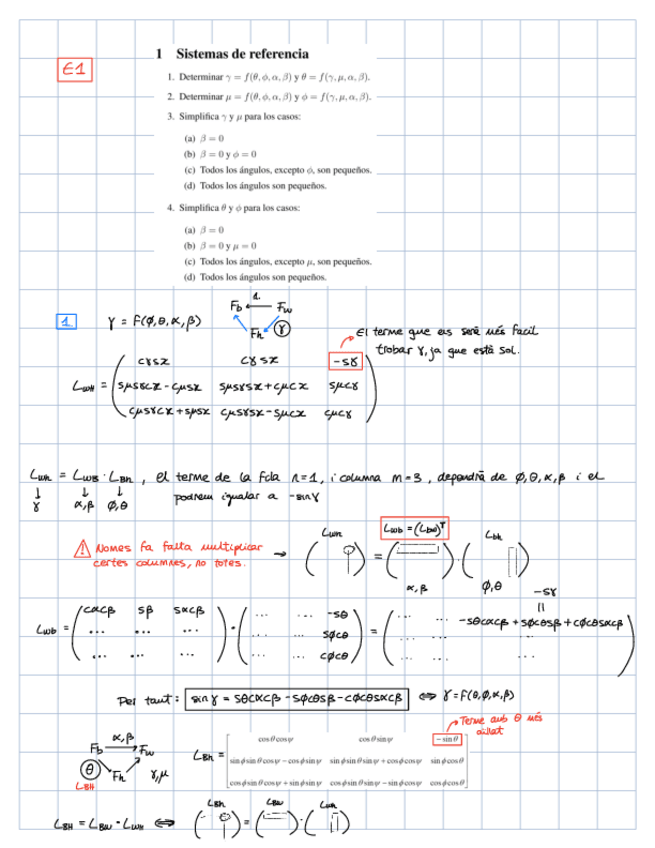 E1
1 Sistemas de referencia
1. Determinar γ = f(θ, φ, α, β) y θ = f(γ, μ, α, β).
2. Determinar μ = f(θ, φ, α, β) y φ = f(γ, μ, α, β).
3. Simplifica γ y μ para los casos:
(a) β = 0
(b) β = 0 y φ = 0
(c) Todos los ángulos, excepto φ, son pequeños.
(d) Todos los ángulos son pequeños.
4. Simplifica θ y φ para los casos:
(a) β = 0
(b) β = 0 y μ = 0
(c) Todos los ángulos, excepto μ, son pequeños.
(d) Todos los ángulos son pequeños.
1. γ = F(φ,θ,α,β)
1.
Fb ← Fw
Fh γ
El terme que ens serà més facil
trobar γ, ja que està sol.
cγsχ cγsχ -sγ
LWH = sμsγcχ - cμsχ sμsγsχ + cμcχ sμcγ
cμsγcχ + sμsχ cμsγsχ - sμcχ cμcγ
LWh = LWB · LBh , el terme de la fila n=1, i columna m=3, dependrà de φ,θ,α,β i el
↓ ↓ ↓
γ α,β φ,θ podrem igualar a -sinγ
⚠ Nomes fa falta multiplicar
certes columnes, no totes. →
Lwh = Lwb = (Lbw)ᵀ · Lbh
α,β φ,θ
-sγ
Lwb = (cαcβ sβ sαcβ ... ... ... ... ... ...) · (... ... -sθ ... ... sφcθ ... ... cφcθ) = (... ... -sθcαcβ + sφcθsβ + cφcθsαcβ ... ... ... ...)
Per tant: sinγ = sθcαcβ - sφcθsβ - cφcθsαcβ ⟺ γ = F(θ,φ,α,β)
Terme amb θ més
aïllat
α,β
Fb → Fw
θ Fh γ,μ
LBH
cos θ cos ψ cos θ sin ψ - sin θ
LBh = sin φ sin θ cos ψ - cos φ sin ψ sin φ sin θ sin ψ + cos φ cos ψ sin φ cos θ
cos φ sin θ cos ψ + sin φ sin ψ cos φ sin θ sin ψ - sin φ cos ψ cos φ cos θ
LBH = LBW · LWH ⟺
LBh = LBW · LWh